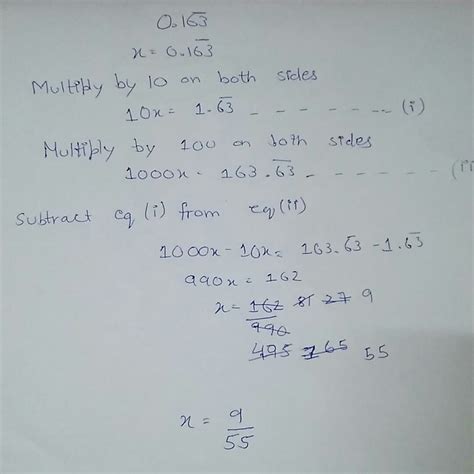 0.16̅3̅
x = 0.16̅3̅
Multiply by 10 on both sides
10x = 1.6̅3̅ - - - - - - - (i)
Multiply by 100 on both sides
1000x = 163.6̅3̅ - - - - - - (ii
Subtract eq (i) from eq (ii)
1000x - 10x = 163.6̅3̅ - 1.6̅3̅
990x = 162
x = 162 81 27 9
990
495 165 55
x = 9
55